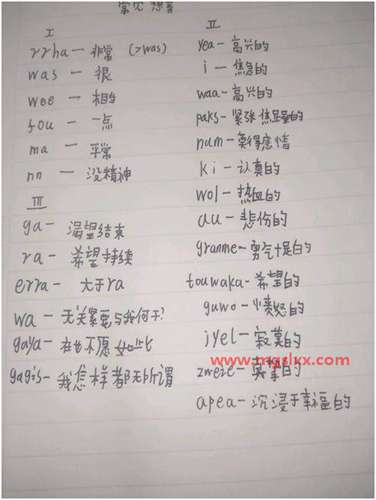 常见想音
I
rrha — 非常 (>was)
was — 很
wee — 相当
fou — 一点
ma — 平常
nn — 没精神
III
ga — 渴望结束
ra — 希望持续
erra — 大于ra
wa — 无关紧要与我何干?
gaya — 在也不愿如此
gagis — 我怎样都无所谓
II
yea — 高兴的
i — 焦急的
waa — 高兴的
paks — 紧张焦虑的
num — 莫得感情
ki — 认真的
wol — 热血的
au — 悲伤的
granme — 勇气十足的
touwaka — 希望的
guwo — 愤怒的
jyel — 寂寞的
zweie — 真挚的
apea — 沉浸于幸福的
www.mqslxx.com